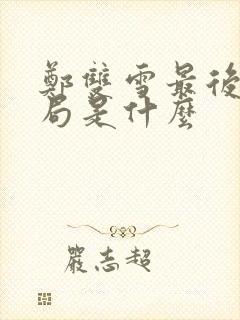 鄭雙雪最後
局是什麼
嚴志超